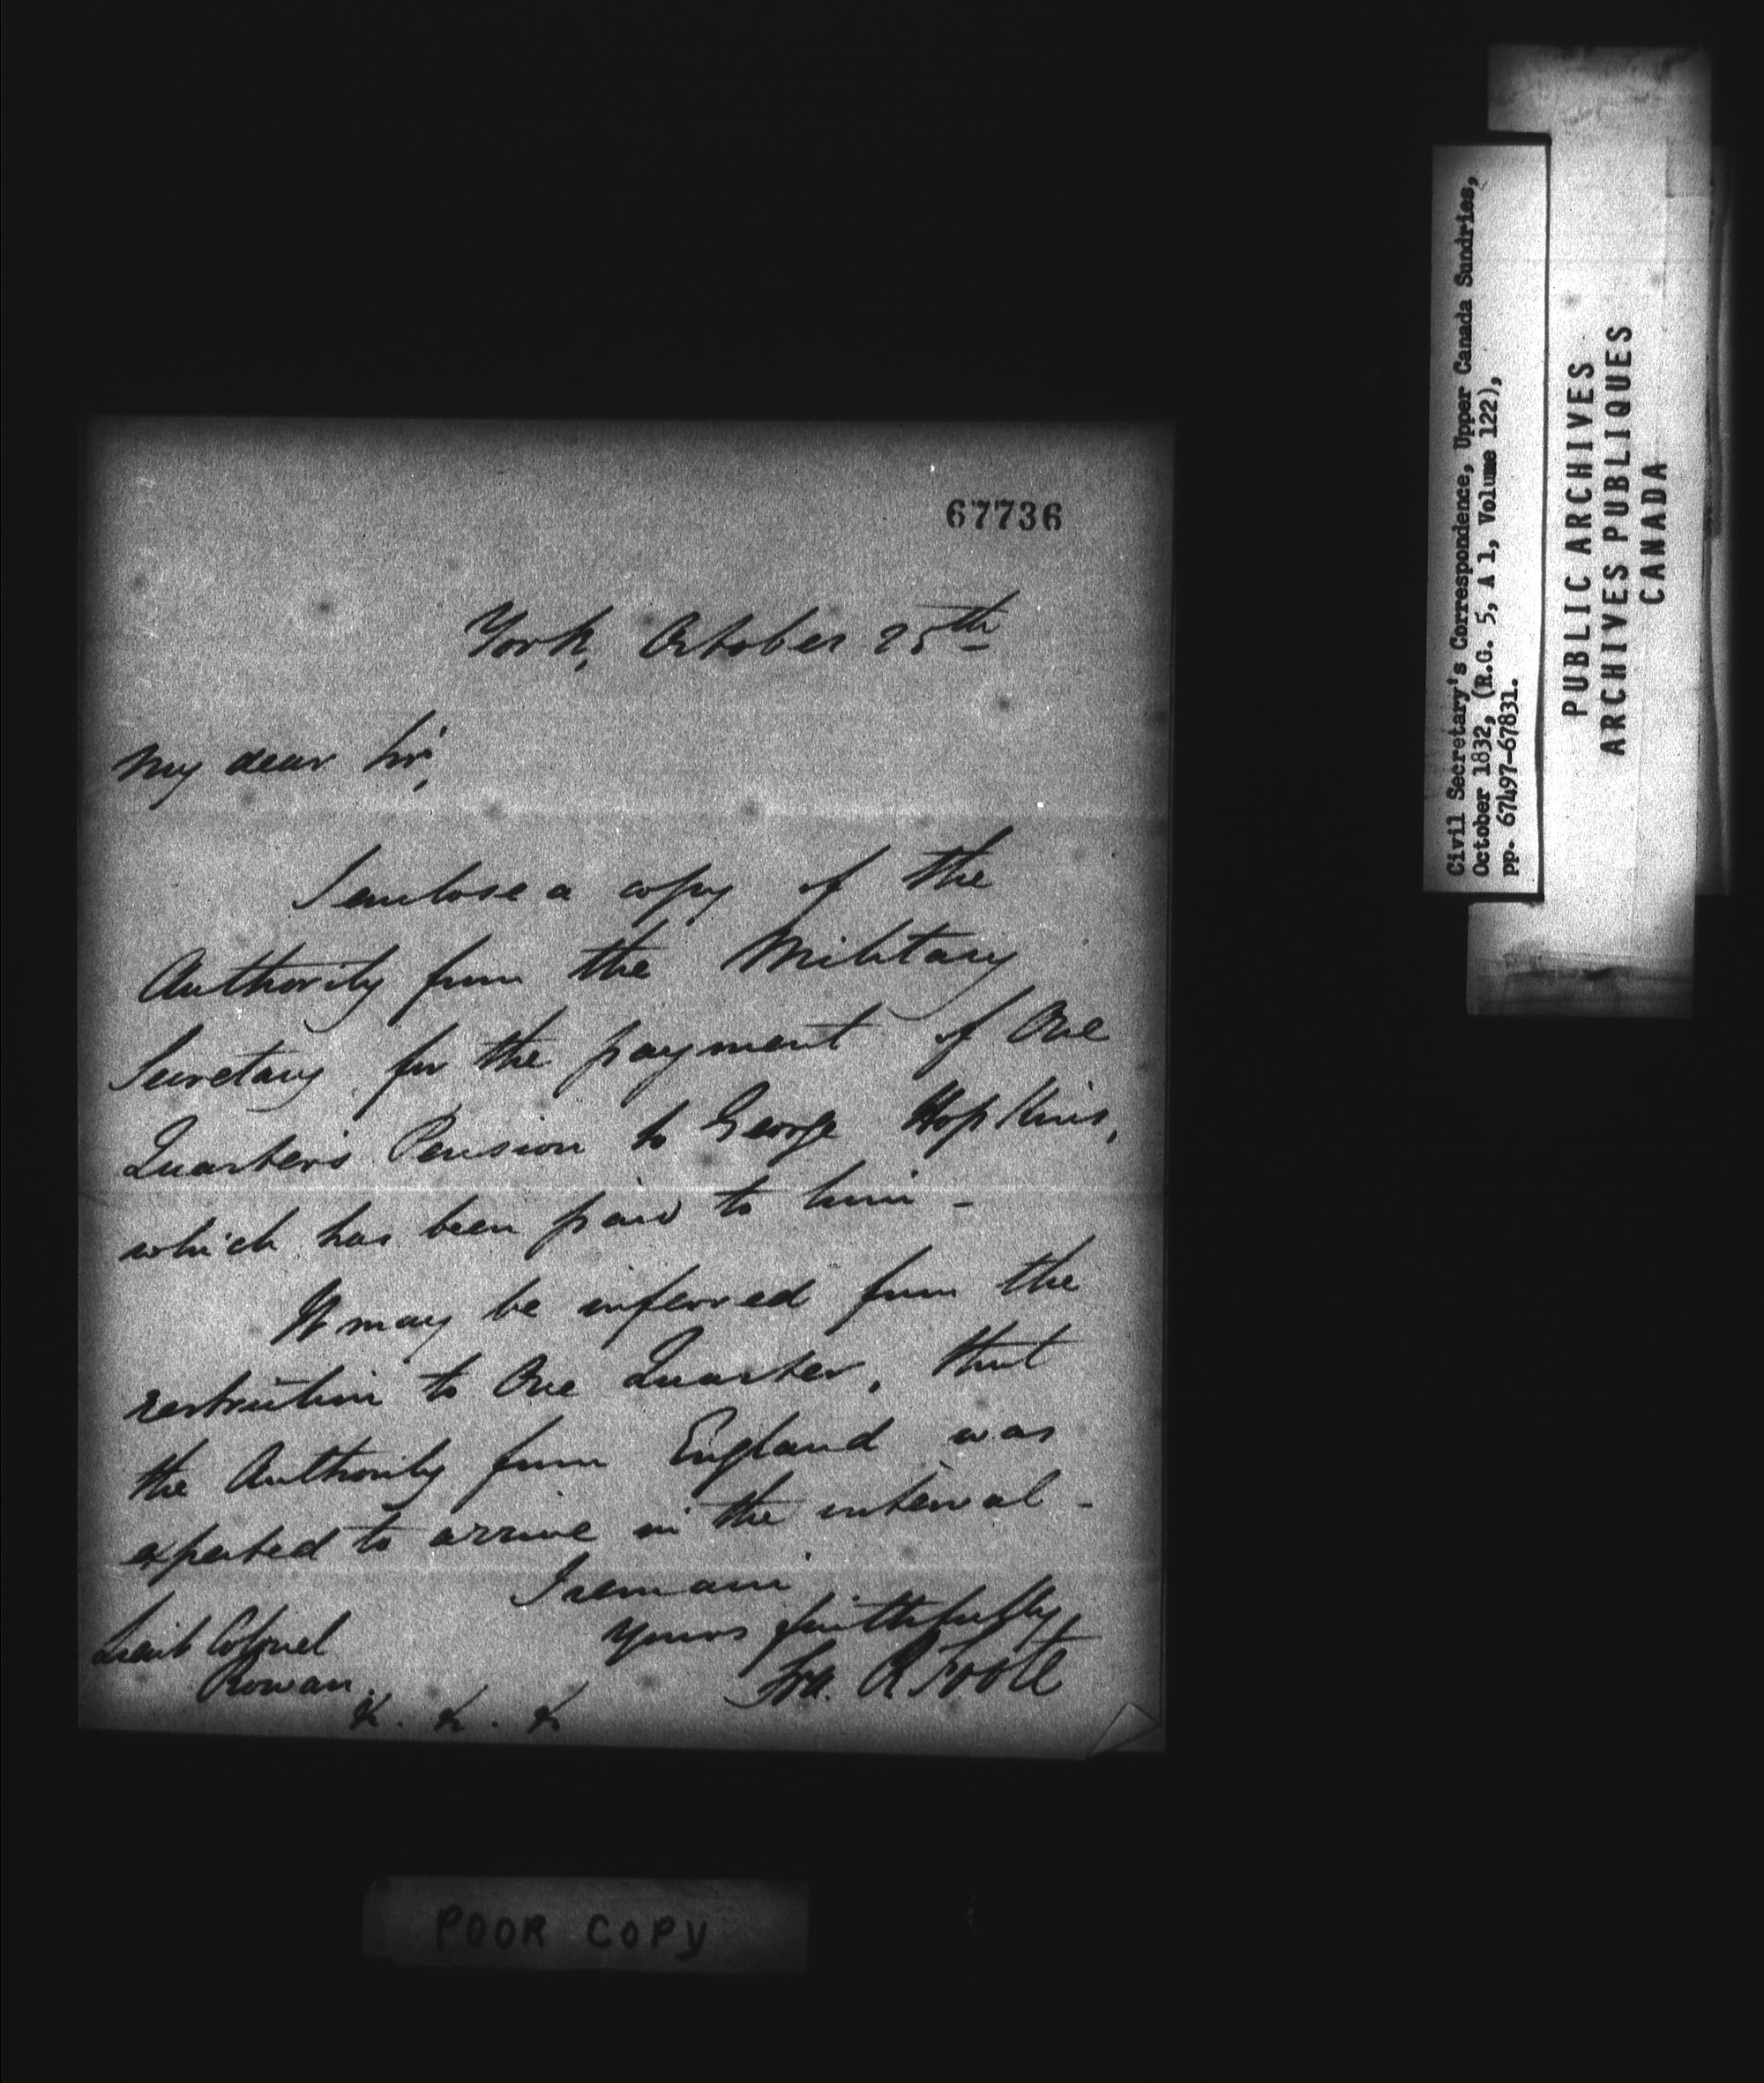 67736
York, October 25th
My dear Sir,
I enclose a copy of the
Authority from the Military
Secretary for the payment of One
Quarter's Pension to George Hopkins,
which has been paid to him -
It may be inferred from the
restriction to One Quarter, that
the Authority from England was
expected to arrive in the interval -
I remain
yours faithfully,
Lieut Colonel
Rowan.
&. &. &
POOR COPY
Civil Secretary's Correspondence, Upper Canada Sundries,
October 1832, (R.G. 5, A 1, Volume 122),
pp. 67497-67831.
PUBLIC ARCHIVES
ARCHIVES PUBLIQUES
CANADA